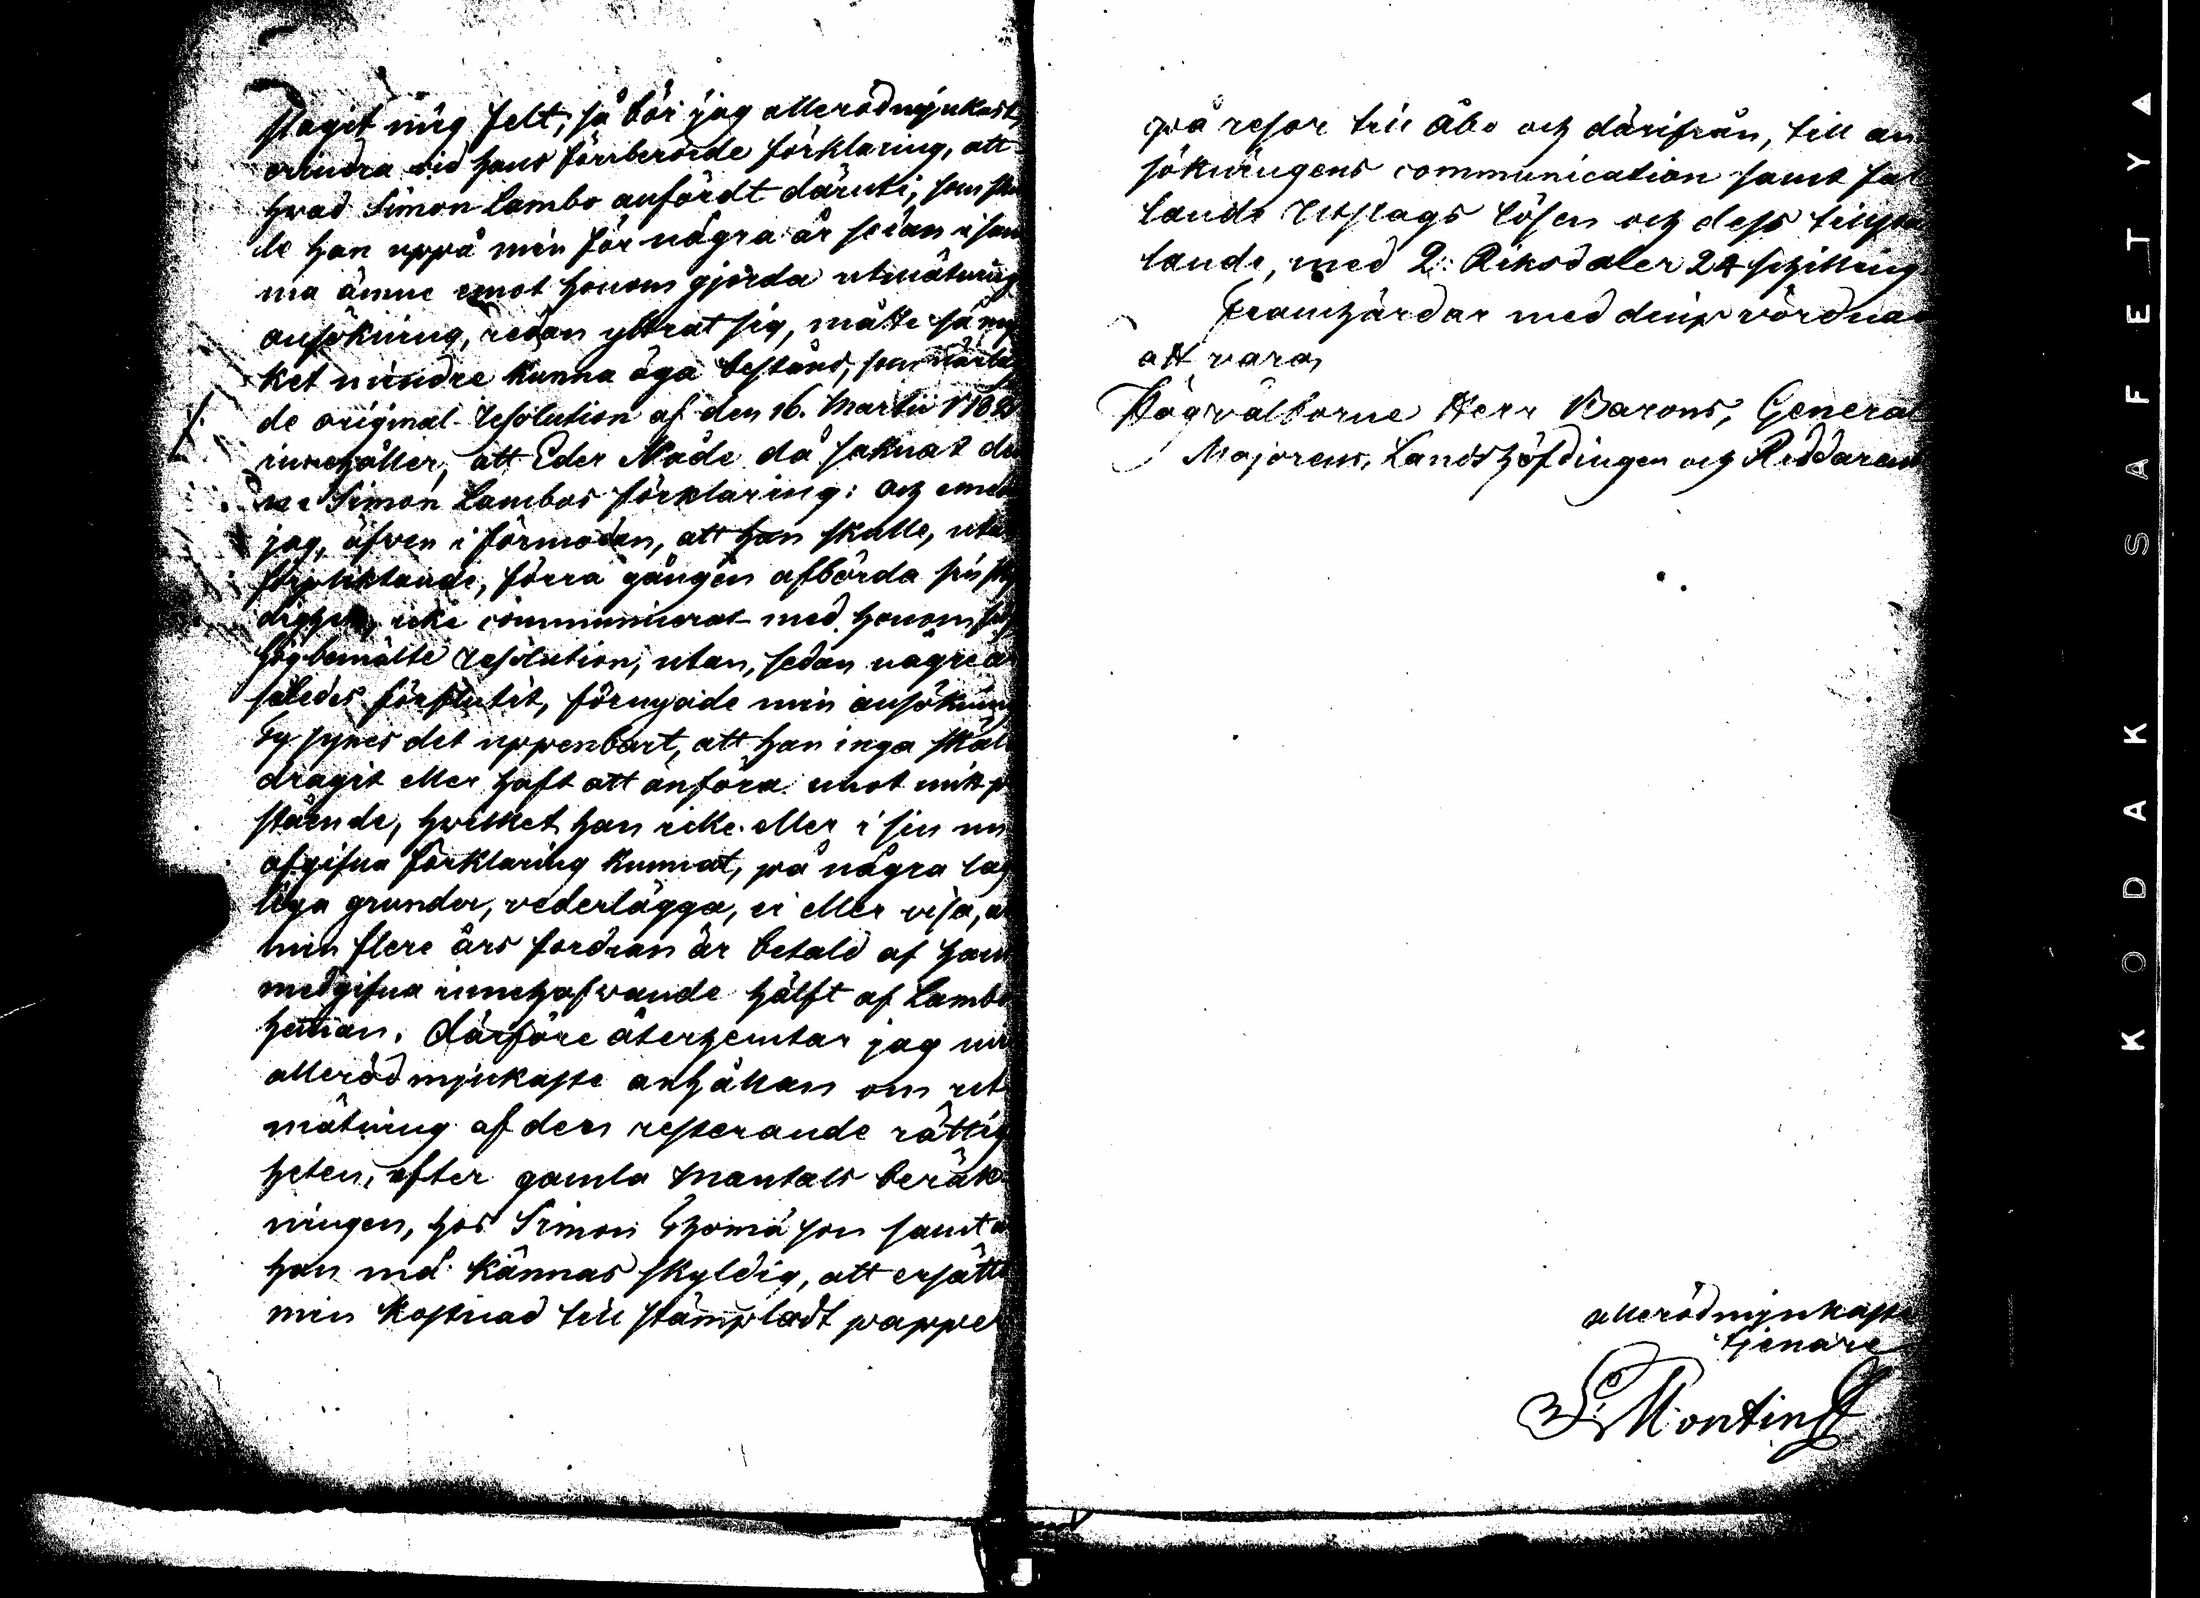 slagit mig felt; så bör jag allerödmjukast
erindra vid hans förrberörde förklaring, att
hvad Simon Lambo anfördt däruti, som
le han uppå min för några år sedan i sam
ma ämne emot honom gjorda utmätnings
ansökning, redan yttrat sig, måtte så myc
ket mindre kunna äga bestånd, som
de original Resolution af den 16. Martii
innehåller, att Eder Nåde då saknat den
ne Simon Lambos förklaring: och emedan
jag, äfven i förmodan, att han skulle, utan
förpliktande, förra gången afbörda sin
dighet, icke communicerat med honom
högbemälte Resolution, utan, sedan någre år
således förflutit, förnyade min ansökning
Ty synes det uppenbart, att han inga skäl
dragit eller haft att anföra emot mitt p
stående, hvilket han icke eller i sin nu
afgifna förklaring kunnat, på några lag
liga grunder, vederlägga, ei eller visa, at
min flere års fordran är betald af
medgifna innehafvande hälft af Lambo
hemman. Därföre återhemtar jag min
allerödmjukaste anhållan om ut
mätning af den resterande rättig
heten, efter gamla mantals beräk
ningen, hos Simon Thomäson samt a
han må kännas skyldig, att ersätta
min kostnad till stämpladt papper
på resor till Åbo och därifrån, till an
sökningens communication samt fal
lande Utslags lösen och dess
lande, med 2: Riksdaler 24 schilling
Framhärdar med diup vördnad
att vara,
Högvälborne Herr Barons, General
Majorens, Landshöfdingen och Riddarens
allerödmjukaste
tjenare
S: Montin
KODAK SAFETY ▲